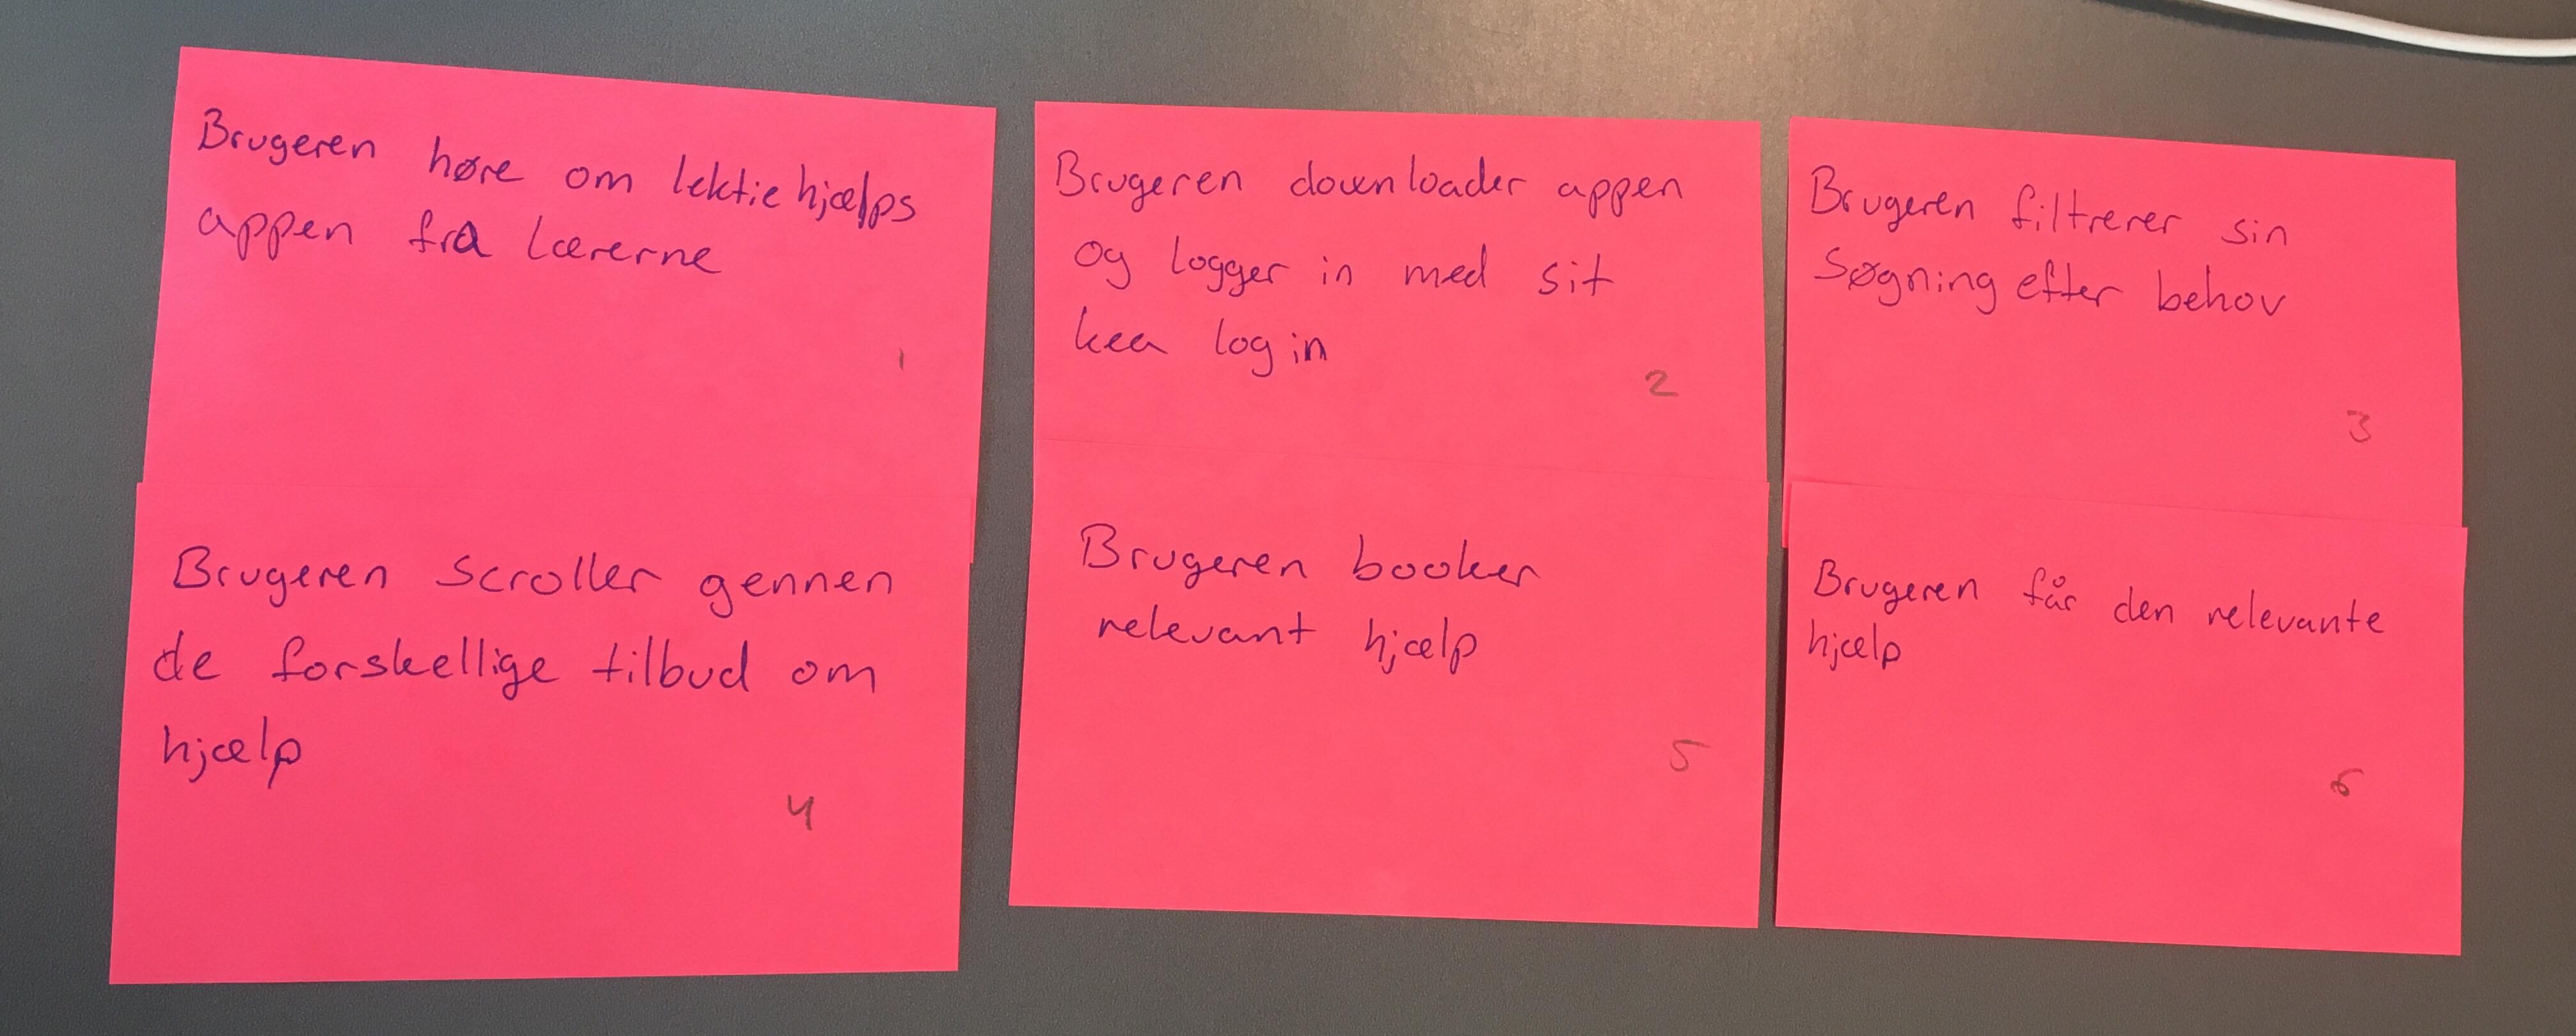 Brugeren høre om lektie hjælps
appen fra lærerne
1
Brugeren downloader appen
og logger in med sit
kea log in
2
Brugeren filtrerer sin
søgning efter behov
3
Brugeren scroller gennen
de forskellige tilbud om
hjælp
4
Brugeren booker
relevant hjælp
5
Brugeren får den relevante
hjælp
6